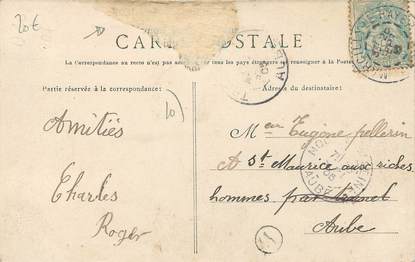 20€
CARTE POSTALE
La Correspondance au recto n'est pas acceptée par tous les pays étrangers, se renseigner à la Poste.
Partie réservée à la correspondance:
Adresse du destinataire:
10
Amitiés
Charles
Roger
Meur Eugène pellerin
A St Maurice aux riches
hommes par
Aube